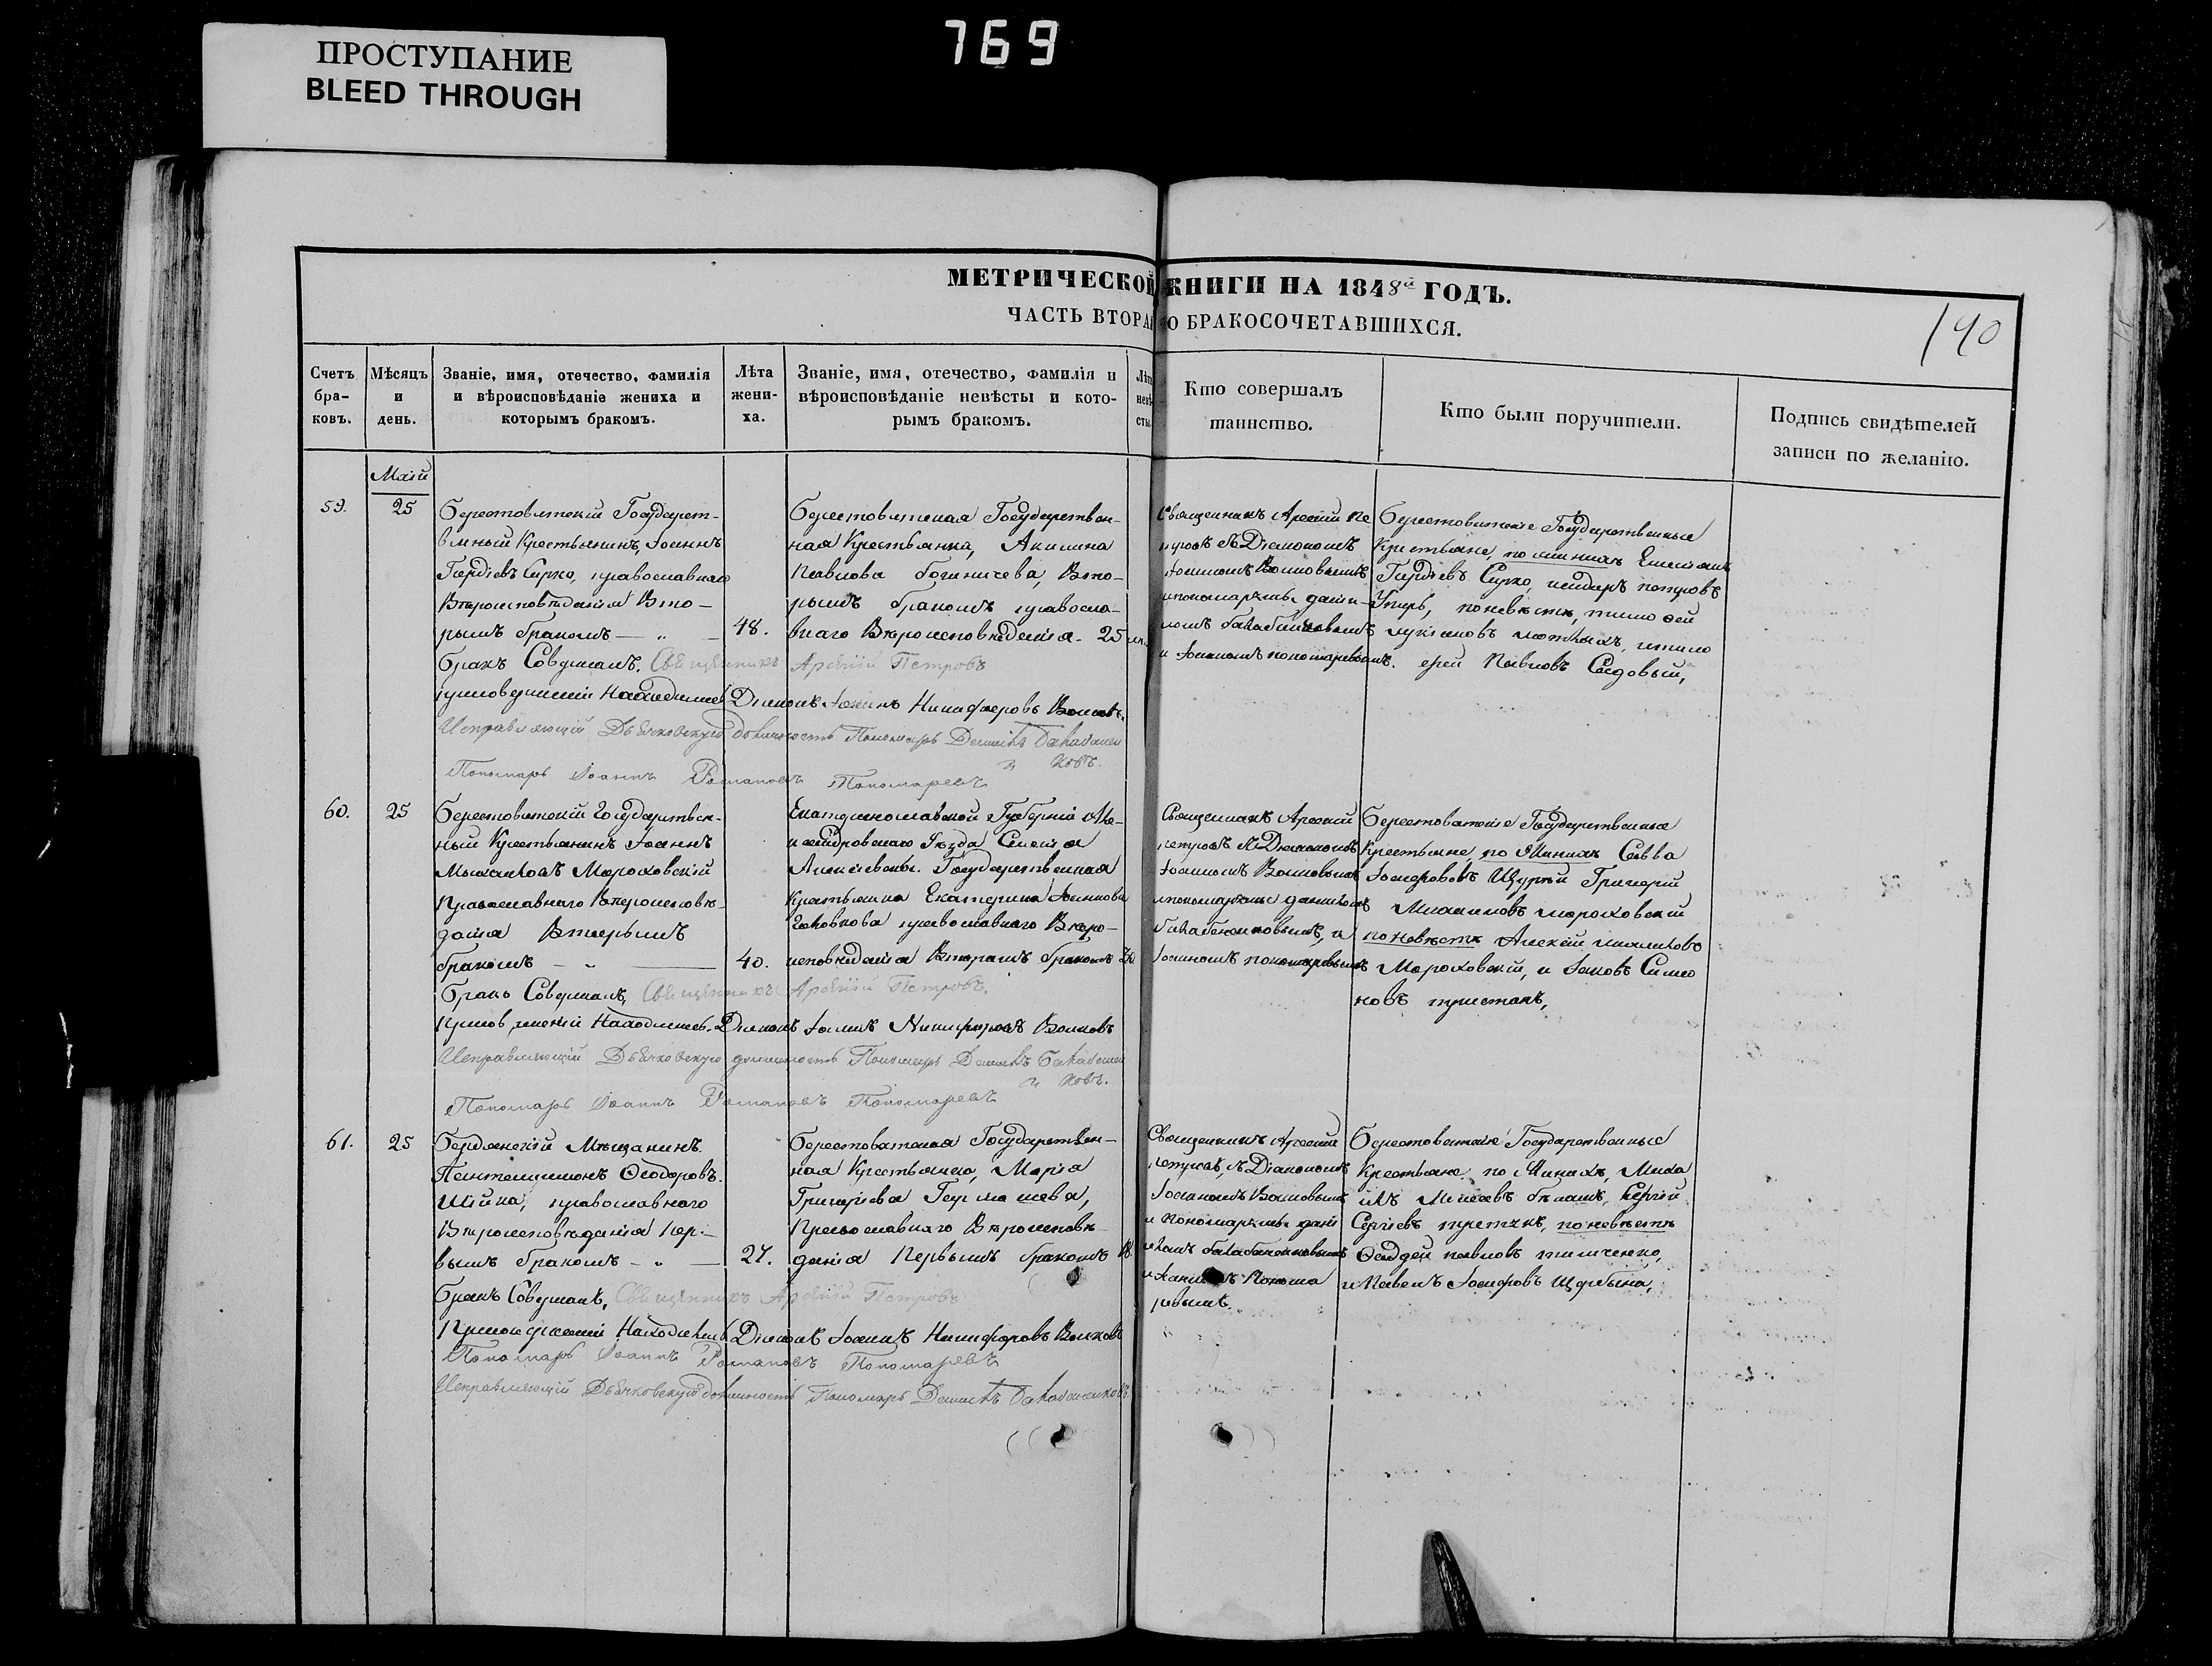 769
ПРОСТУПАНИЕ
BLEED THROUGH
МЕТРИЧЕСКОЙ КНИГИ НА 1848й ГОДЪ.
ЧАСТЬ ВТОРАЯ О БРАКОСОЧЕТАВШИХСЯ.
140
Счетъ
бра-
ковъ.
Мѣсяцъ
и
день.
Званіе, имя, отечество, фамилія
и вѣроисповѣданіе жениха и
которымъ бракомъ.
Лѣта
жени-
ха.
Званіе, имя, отечество, фамилія и
вѣроисповѣданіе невѣсты и кото-
рымъ бракомъ.
Лѣта
невѣ-
сты
Кто совершалъ
таинство.
Кто были поручители.
Подпись свидѣтелей
записи по желанію.
Маій
59.
25
Берестоватскій Государст-
венный Крестьянинъ, Іоаннъ
Гордіевъ Сирко, православнаго
Вѣроисповѣданія Вто-
рымъ бракомъ — „ —
48.
Берестоватская Государствен-
ная Крестьянка, Акилина
Павлова, Вто-
рымъ бракомъ православ-
наго Вѣроисповѣданія — 25
Священникъ Арсеній Пе
тровъ съ Діакономъ
Іоанномъ Волковымъ
и пономарями Дани-
ломъ
и Іоанномъ Пономаревымъ.
Берестоватскіе Государственные
Крестьяне, по женихѣ Емеліанъ
Гордіевъ Сирко, петровъ
по невѣстѣ, тимофей
лукіановъ, и тимо
фей Павловъ Садовый,
Бракъ Совершалъ. Священникъ Арсеній Петровъ
При совершеніи Находился Діаконъ Іоаннъ Никифоровъ Волковъ.
Исправляющій Дьячковскую должность Пономарь Даніилъ
Пономарь Іоаннъ Романовъ Пономаревъ
60.
25
Берестоватскій Государствен-
ный Крестьянинъ Іоаннъ
Михайловъ Мороховскій
Православнаго Вѣроисповѣ-
данія Вторымъ
бракомъ — „ —
40.
Екатеринославской Губерніи Але-
ксандровскаго Уѣзда Селенія
Алексѣевки. Государственная
Крестьянка Екатерина Іоаннова
православнаго Вѣро-
исповѣданія Вторымъ бракомъ
Священникъ Арсеній
Петровъ съ Діакономъ
Іоанномъ Волковымъ
и пономарями Даниломъ
и
Іоанномъ пономаревымъ
Берестоватскіе Государственные
Крестьяне, по женихѣ Савва
Іосифовъ Григорій
Михаиловъ мороховскій
по невѣстѣ Алексѣй михаиловъ
Мороховскій, и Іаковъ Симо
новъ тристанъ,
Бракъ Совершалъ, Священникъ Арсеній Петровъ.
При совершеніи Находился. Діаконъ Іоаннъ Никифоровъ Волковъ
Исправляющій Дьячковскую должность Пономарь Даніилъ
Пономарь Іоаннъ Романовъ Пономаревъ
61.
25
Бердянскій Мѣщанинъ
Пантелиимонъ Ѳеодоровъ
Шійка, православнаго
Вѣроисповѣданія Пер-
вымъ бракомъ — „ —
27.
Берестоватская Государствен-
ная Крестьянка, Марія
Григорьева,
Православнаго Вѣроисповѣ-
данія Первымъ бракомъ 18
Священникъ Арсеній
Петровъ, съ Діакономъ
Іоанномъ Волковымъ
и Пономарями Дані
иломъ
и Іоанномъ Понома
ревымъ.
Берестоватскіе Государственные
Крестьяне по женихѣ, Миха
илъ бѣлашъ, Сергій
Сергіевъ третякъ, по невѣстѣ
Ѳаддей павловъ тимченко,
и Павелъ Іосифовъ Щербина,
Бракъ Совершалъ, Священникъ Арсеній Петровъ
При совершеніи Находился Діаконъ Іоаннъ Никифоровъ Волковъ
Пономарь Іоаннъ Романовъ Пономаревъ
Исправляющій Дьячковскую должность Пономарь Даніилъ